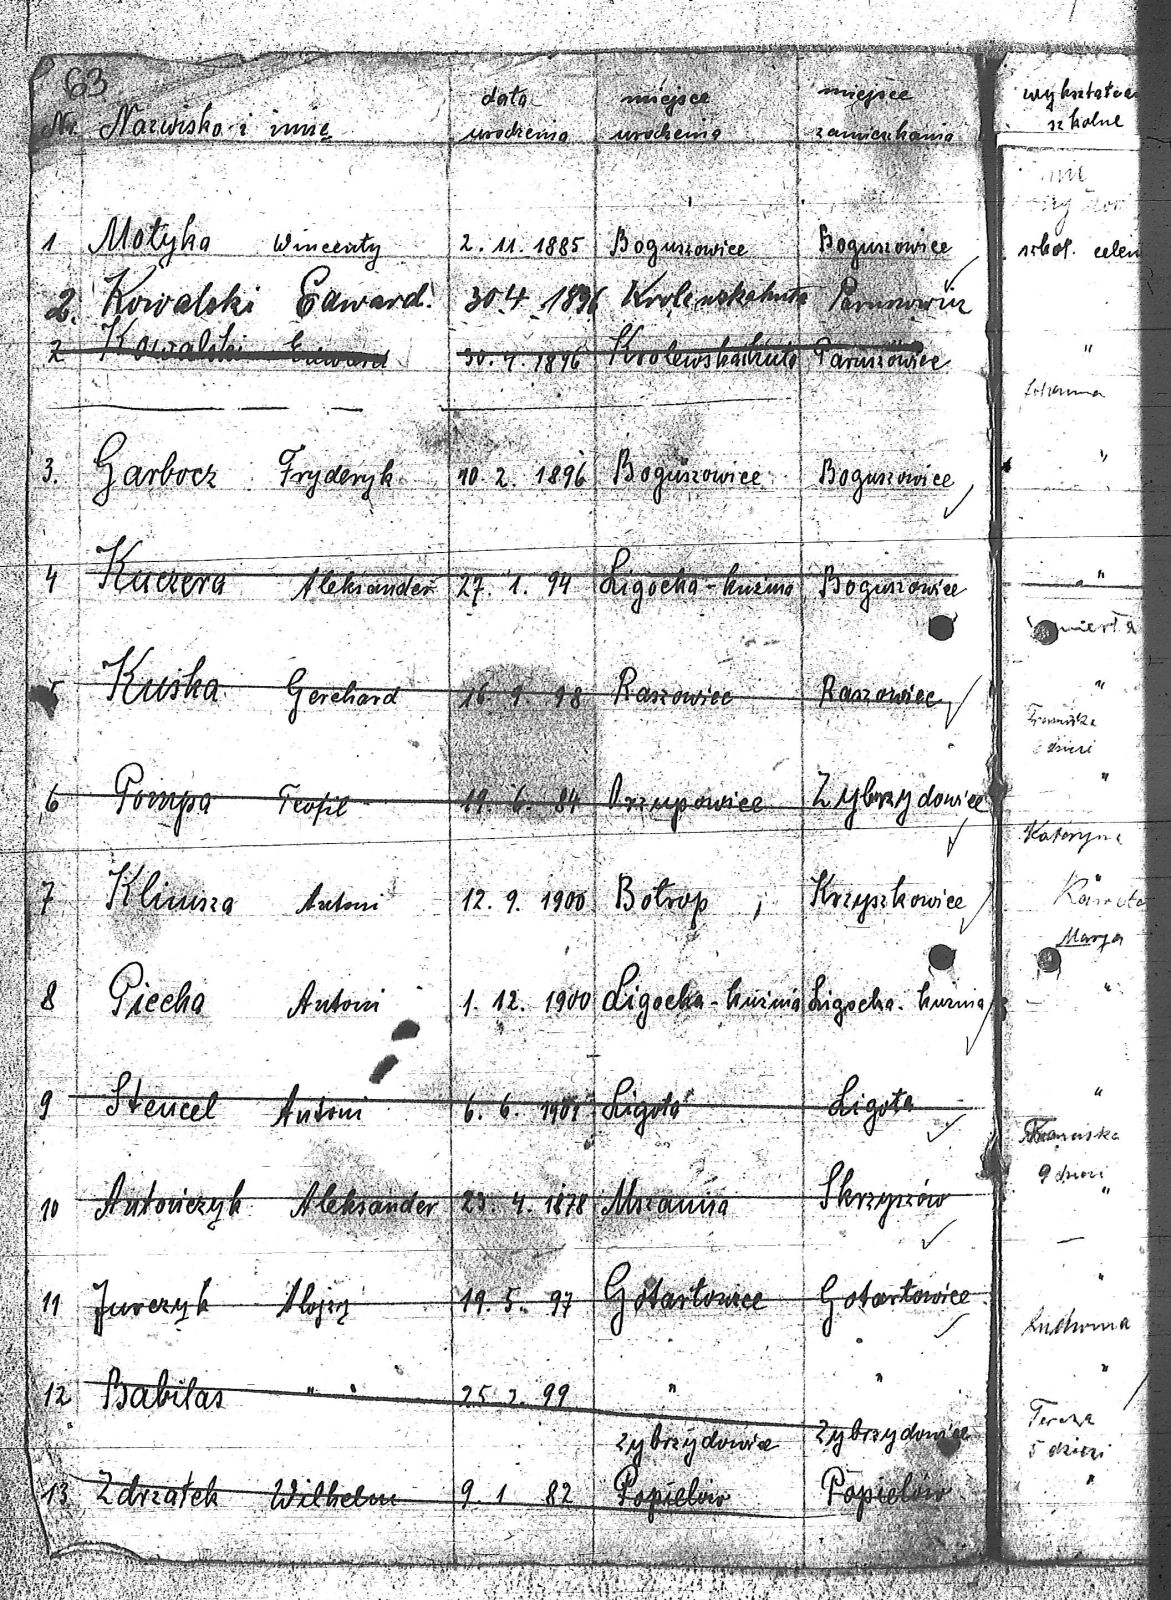 63
data miejsce miejsce wykształce
Nr. Nazwisko i imię urodzenia urodzenia zamieszkania szkolne
1 Motyka Wincenty 2. 11. 1885 Boguszowice Boguszowice szkol.
2. Kowalski Edward. 30.4. 1896 Królewskahuta Paruszowice
2 Kowalski Edward 30. 4. 1896 Królewskahuta Paruszowice "
Johanna
3. Garbocz Fryderyk 10. 2. 1896 Boguszowice Boguszowice "
4 Kuczera Aleksander 27. 1. 94 Ligocka-kuźnia Boguszowice "
5 Kuśka Gerchard 16. 9. 98 Raszowiec Raszowiec "
Franciszka
dzieci
6 Pompa Teofil 19. 6. 84 Zybrzydowice "
Kataryna
7 Klimsza Antoni 12. 9. 1900 Botrop ; Krzyszkowice "
Marya
8 Piecha Antoni 1. 12. 1900 Ligocka-kuźnia Ligocka-kuźnia "
9 Stencel Antoni 6. 6. 1901 Ligota Ligota "
Franciska
9 dzieci
10 Antończyk Aleksander 23. 4. 1878 Mszanna Skrzyszów "
11 Jurczyk Alojzy 19. 5. 97 Gotartowice Gotartowice "
Ludwina
12 Babilas " " 25. 2. 99 " " "
Zybrzydowice Zybrzydowice
Tereza
5 dzieci
13 Zdrzałek Wilhelm 9. 1 82 Popielów Popielów "